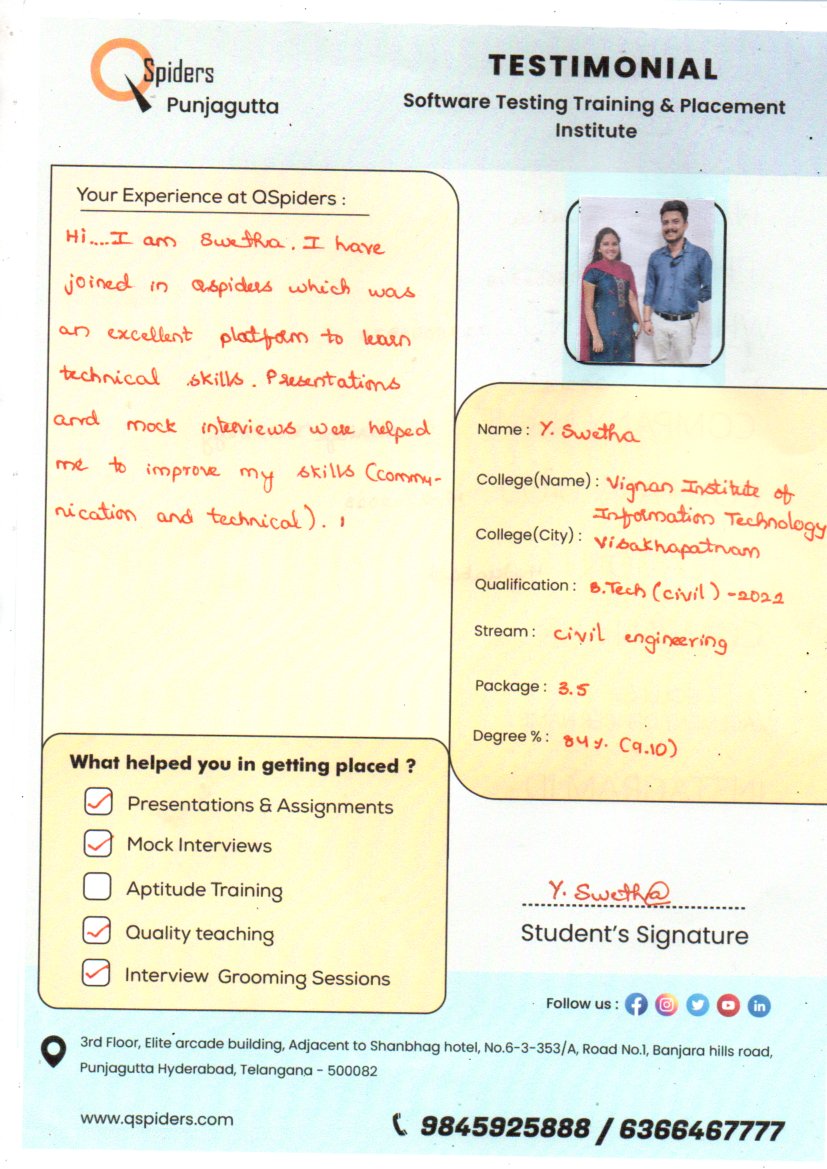 QSpiders
Punjagutta
TESTIMONIAL
Software Testing Training & Placement
Institute
Your Experience at QSpiders :
Hi....I am Swetha. I have
joined in Qspiders which was
an excellent platform to learn
technical skills. Presentations
and mock interviews were helped
me to improve my skills (commu-
nication and technical).
Name : Y. Swetha
College(Name) : Vignan Institute of
Information Technology
College(City) : Visakhapatnam
Qualification : B.Tech (civil) - 2022
Stream : civil engineering
Package : 3.5
Degree % : 84%. (9.10)
What helped you in getting placed ?
Presentations & Assignments
Mock Interviews
Aptitude Training
Quality teaching
Interview Grooming Sessions
Y. Swetha
Student's Signature
Follow us :
3rd Floor, Elite arcade building, Adjacent to Shanbhag hotel, No.6-3-353/A, Road No.1, Banjara hills road,
Punjagutta Hyderabad, Telangana - 500082
www.qspiders.com
9845925888 / 6366467777